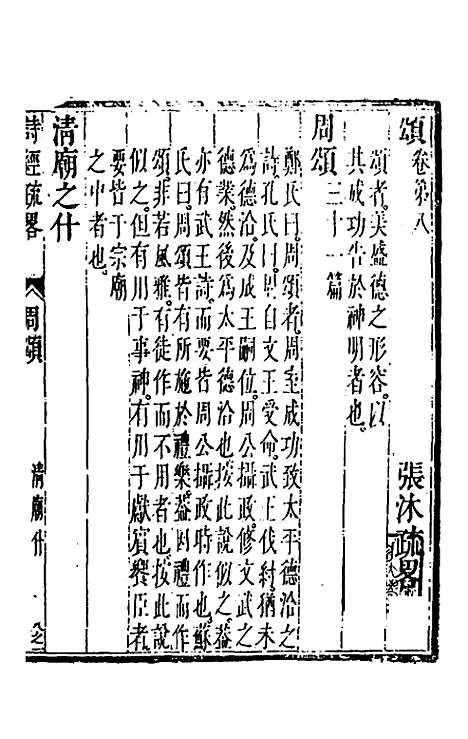 頌卷第八
張沐疏畧
頌者美盛德之形容以
其成功告於神明者也
周頌三十一篇
鄭氏曰周頌者周室成功致太平德洽之
詩孔氏曰周自文王受命武王伐紂猶未
為德洽及成王嗣位周公攝政修文武之
德業然後為太平德洽也按此說似之葢
亦有武王詩而要皆周公攝政時作也蘇
氏曰周頌皆有所施於禮樂葢因禮而作
頌非若風雅有徒作而不用者也按此說
似之但有用于事神有用于獻賓饗臣者
要皆于宗廟
之中者也
清廟之什
詩經疏畧
周頌
清廟什